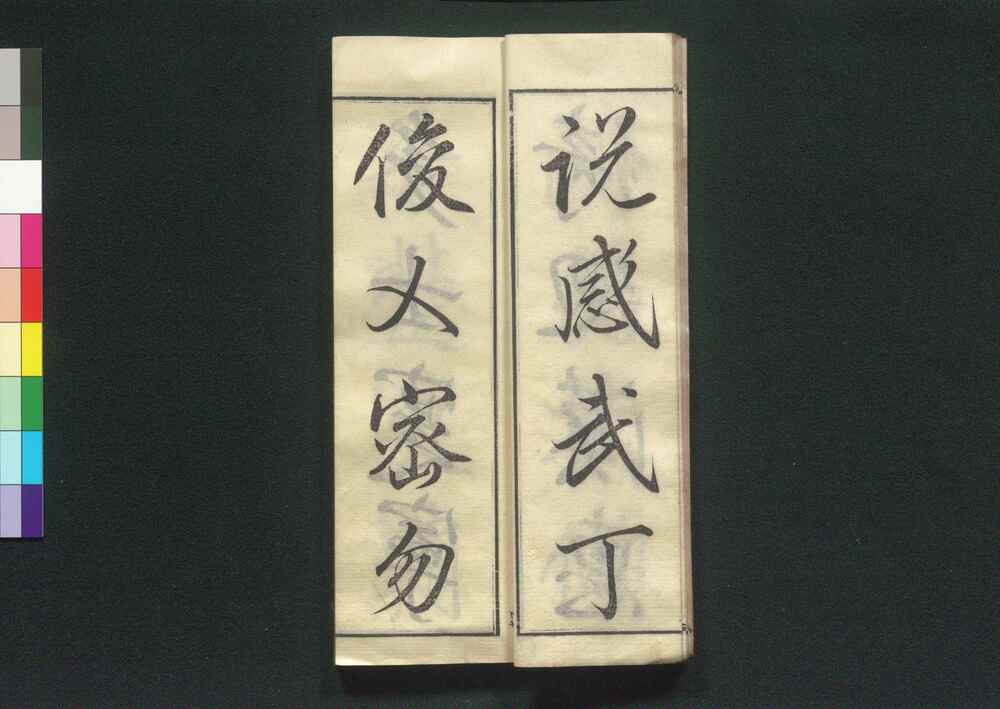 説感武丁
俊乂密勿